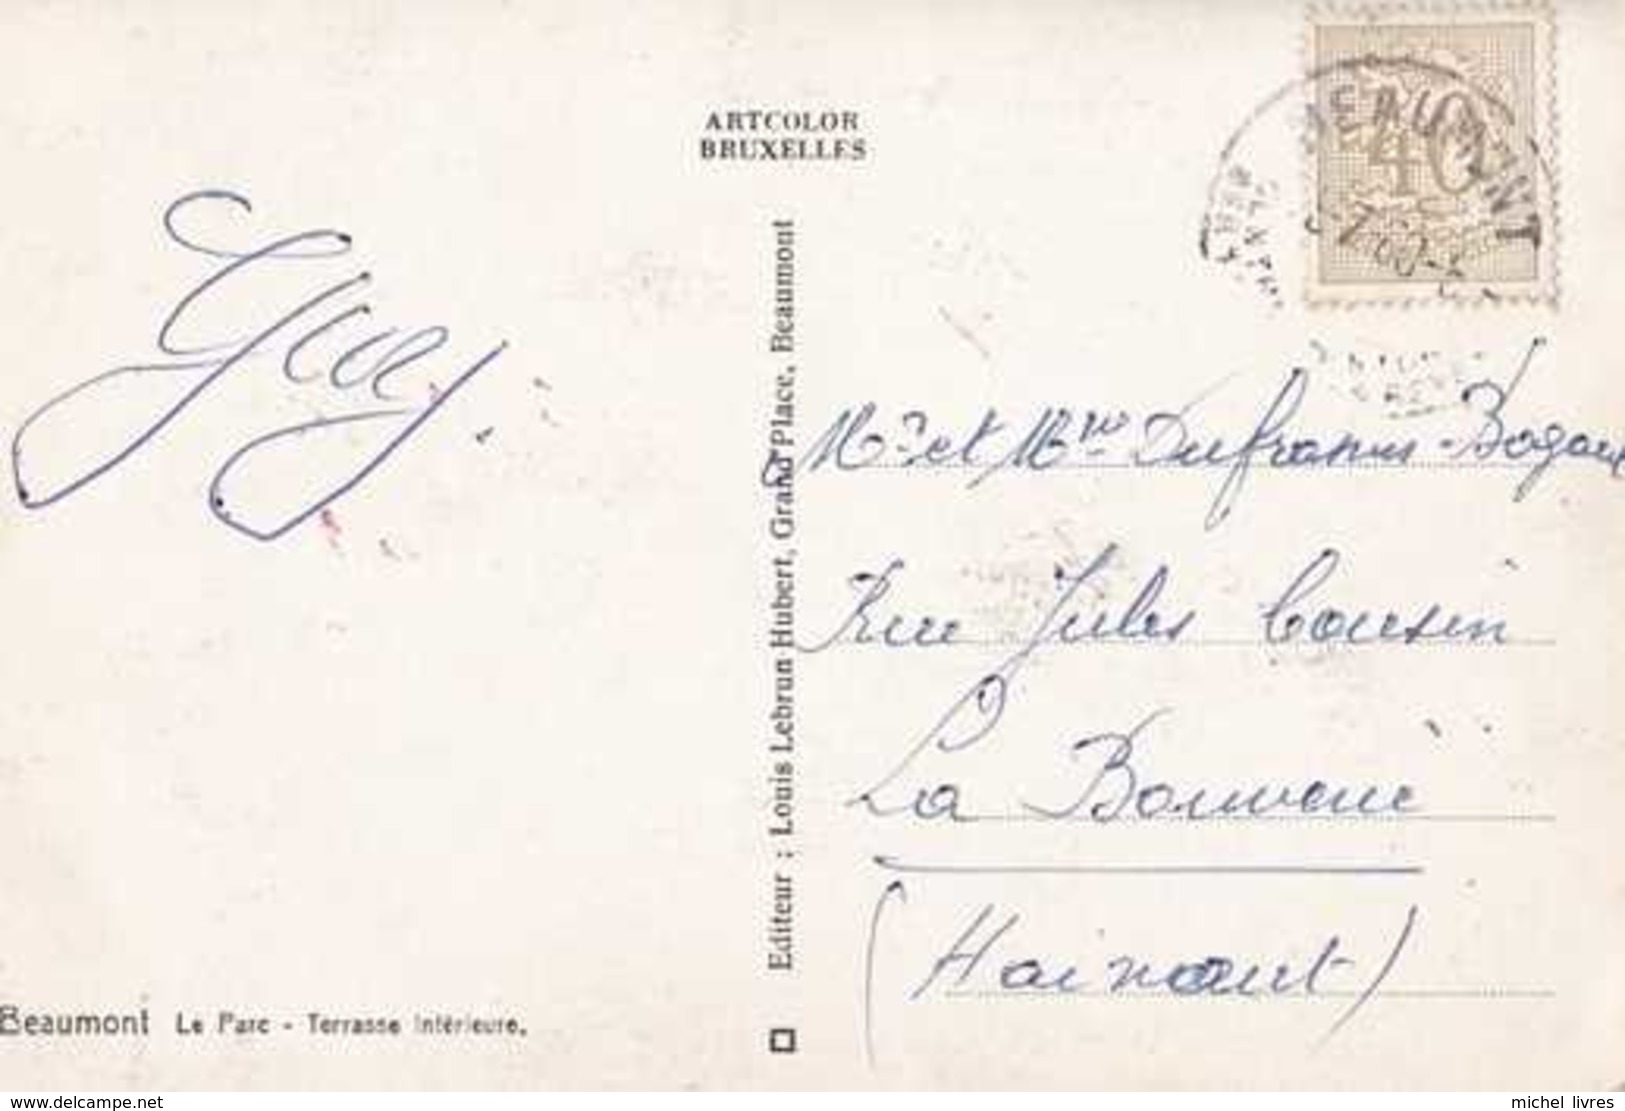 ARTCOLOR
BRUXELLES
40
BEAUMONT
Guy
Editeur : Louis Lebrun Hubert, Grand'Place, Beaumont
Mr et Mme Dufrasnes-Bogaert
Rue Jules Cousin
La Bouverie
(Hainaut)
Beaumont Le Parc - Terrasse Intérieure.
www.delcampe.net
michel_livres